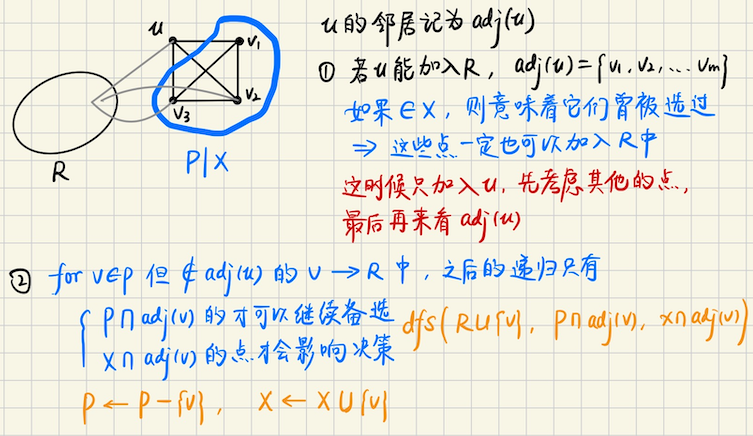 u
v₁
v₂
v₃
R
P|X
u的邻居记为adj(u)
① 若u能加入R, adj(u)={v₁,v₂,...vm}
如果∈X, 则意味着它们曾被选过
⇒ 这些点一定也可以加入R中
这时候只加入u, 先考虑其他的点,
最后再来看adj(u)
② for v∈P 但 ∉ adj(u) 的 v → R 中, 之后的递归只有
{ P∩adj(v) 的才可以继续备选
X∩adj(v) 的点才会影响决策
dfs(R∪{v}, P∩adj(v), X∩adj(v))
P ← P-{v}, X ← X∪{v}